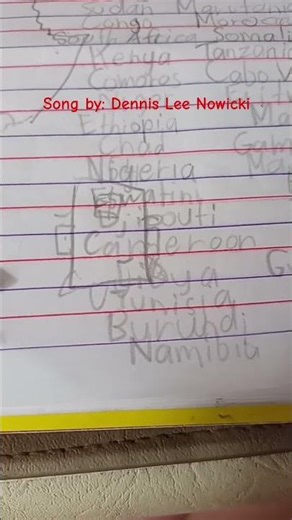 Sudan
Congo Moroc
South Africa Somali
Kenya Tanzania
Comoros Cabo V
Song by: Dennis Lee Nowicki
Ethiopia Ma
Chad Gam
Nigeria Ma
Eswatini
Djibouti
Cameroon
Libya G
Tunisia
Burundi
Namibia